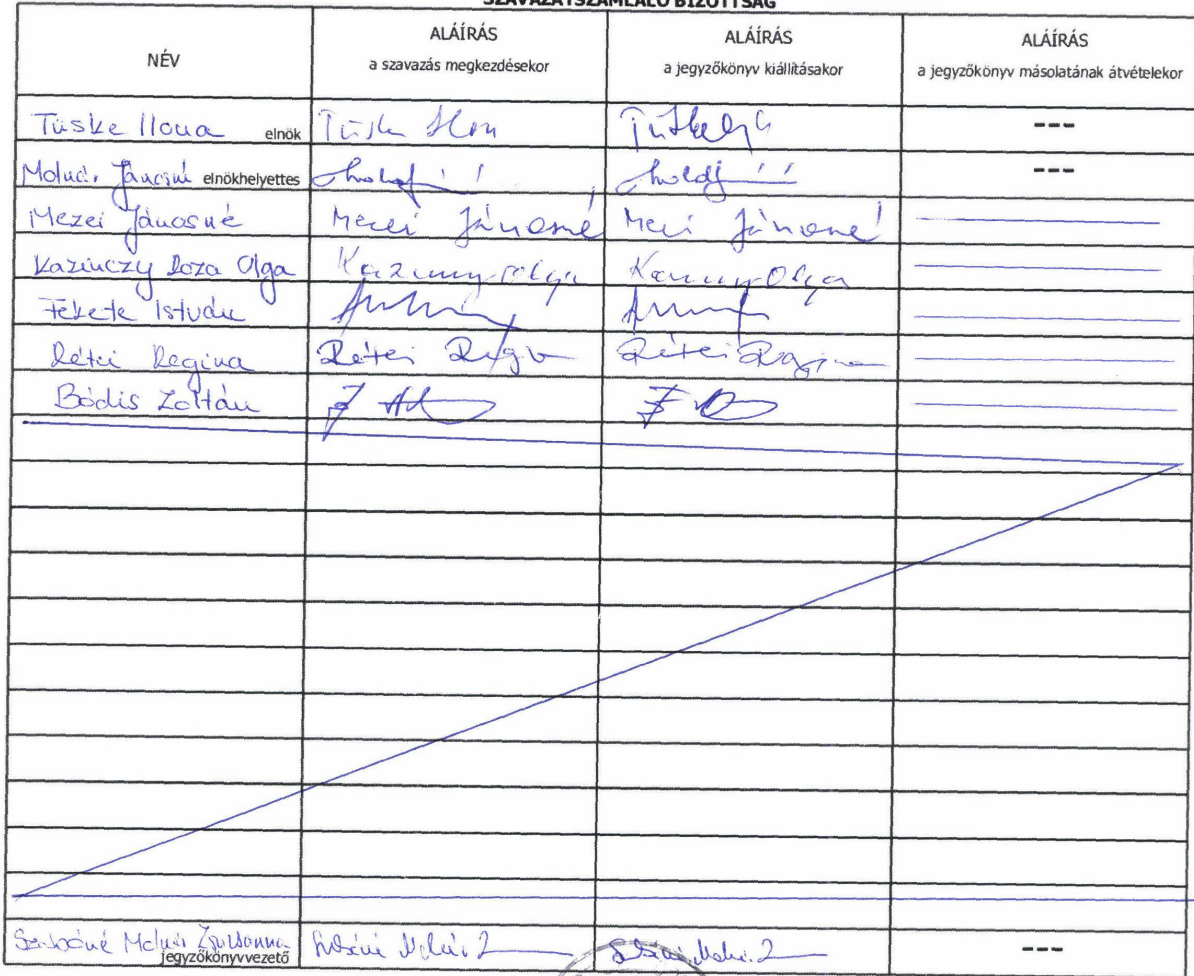 SZAVAZATSZÁMLÁLÓ BIZOTTSÁG
NÉV
ALÁÍRÁS
a szavazás megkezdésekor
ALÁÍRÁS
a jegyzőkönyv kiállításakor
ALÁÍRÁS
a jegyzőkönyv másolatának átvételekor
Tüske Ilona elnök
---
Molnár Jánosné elnökhelyettes
---
Mezei Jánosné Mezei Jánosné Jánosné
Kazinczy Roza Olga Olga
Fekete István
Rétei Regina Rétei Rétei Regina
Bódis Zoltán
Szabóné Molnár Zsuzsanna
jegyzőkönyvvezető
---